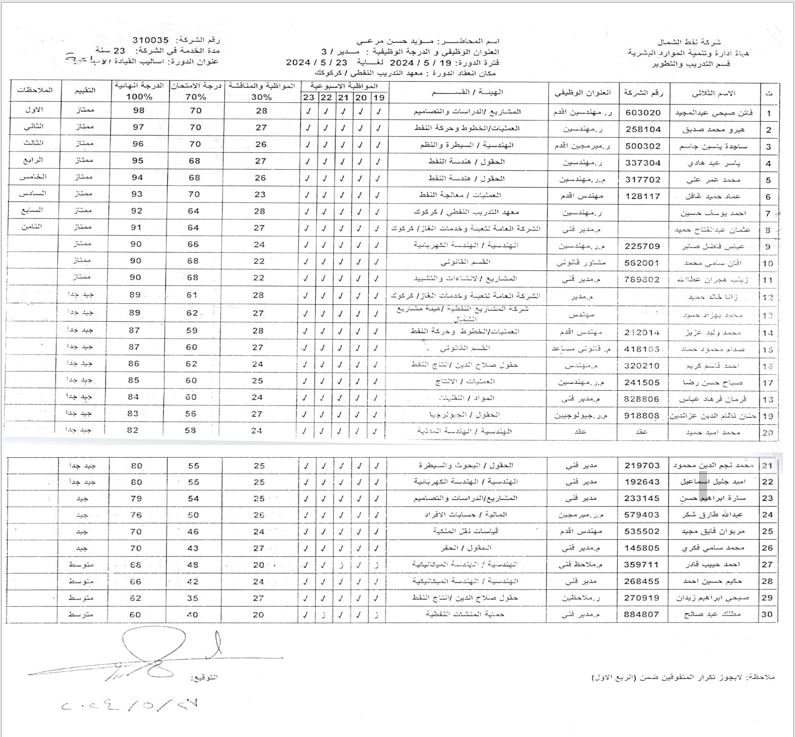 شركة نفط الشمال
هيأة ادارة وتنمية الموارد البشرية
قسم التدريب والتطوير
اسم المحاضر: مؤيد حسن مرعي
العنوان الوظيفي و الدرجة الوظيفية : مدير / 3
فترة الدورة : 19 / 5 / 2024 لغاية 23 / 5 / 2024
مكان انعقاد الدورة : معهد التدريب النفطي / كركوك
رقم الشركة: 310035
مدة الخدمة في الشركة: 23 سنة
عنوان الدورة: اساليب القيادة الابداعية
ت الاسم الثلاثي رقم الشركة العنوان الوظيفي الهيئة / القسم المواظبة الاسبوعية 19 20 21 22 23 المواظبة والمناقشة 30% درجة الامتحان 70% الدرجة النهائية 100% التقييم الملاحظات
1 فاتن صبحي عبدالمجيد 603020 ر.مهندسين اقدم المشاريع/الدراسات والتصاميم √ √ √ √ √ 28 70 98 ممتاز الاول
2 هيرو محمد صديق 258104 ر.مهندسين العمليات/الخطوط وحركة النفط √ √ √ √ √ 27 70 97 ممتاز الثاني
3 ساجدة ياسين جاسم 500302 ر.مبرمجين اقدم الهندسية / السيطرة والنظم √ √ √ √ √ 26 70 96 ممتاز الثالث
4 ياسر عبد هادي 337304 ر.مهندسين الحقول / هندسة النفط √ √ √ √ √ 27 68 95 ممتاز الرابع
5 محمد عمر علي 317702 م.ر.مهندسين الحقول / هندسة النفط √ √ √ √ √ 26 68 94 ممتاز الخامس
6 عماد حميد غافل 128117 مهندس اقدم العمليات / معالجة النفط √ √ √ √ √ 23 70 93 ممتاز السادس
7 احمد يوسف حسين ر.مهندسين معهد التدريب النفطي / كركوك √ √ √ √ √ 28 64 92 ممتاز السابع
8 عثمان عبدالفتاح حميد م.مدير فني الشركة العامة لتعبئة وخدمات الغاز/ كركوك √ √ √ √ √ 27 64 91 ممتاز الثامن
9 عباس فاضل صابر 225709 م.ر.مهندسين الهندسية / الهندسة الكهربائية √ √ √ √ √ 24 66 90 ممتاز
10 افان سامي محمد 562001 مشاور قانوني القسم القانوني √ √ √ √ √ 22 68 90 ممتاز
11 زينب هجران عطاالله 769802 م.مدير فني المشاريع /الانشاءات والتشييد √ √ √ √ √ 22 68 90 ممتاز
12 زانا خالد حميد م.مدير الشركة العامة لتعبئة وخدمات الغاز/ كركوك √ √ √ √ √ 28 61 89 جيد جدا
13 محمد بهزاد حميد مهندس شركة المشاريع النفطية /هيئة مشاريع الشمال √ √ √ √ √ 27 62 89 جيد جدا
14 محمد وليد عزيز 212014 مهندس اقدم العمليات/الخطوط وحركة النفط √ √ √ √ √ 28 59 87 جيد جدا
15 صدام محمود حماد م. قانوني مساعد القسم القانوني √ √ √ √ √ 27 60 87 جيد جدا
16 احمد قاسم كريم 320210 م.مهندس حقول صلاح الدين / انتاج النفط √ √ √ √ √ 24 62 86 جيد جدا
17 صباح حسن رضا 241505 م.ر.مهندسين العمليات / الانتاج √ √ √ √ √ 25 60 85 جيد جدا
18 فرمان فرهاد عباس 828806 م.مدير فني المواد / النقليات √ √ √ √ √ 24 60 84 جيد جدا
19 حنان نظام الدين عزالدين 918808 م.ر.جيولوجيين الحقول / الجيولوجيا √ √ √ √ √ 27 56 83 جيد جدا
20 محمد اميد حميد عقد عقد الهندسية / الهندسة المدنية √ √ √ √ √ 24 58 82 جيد جدا
21 محمد نجم الدين محمود 219703 مدير فني الحقول / البحوث والسيطرة √ √ √ √ √ 25 55 80 جيد جدا
22 اميد جليل اسماعيل 192643 مدير فني الهندسية / الهندسة الكهربائية √ √ √ √ √ 25 55 80 جيد جدا
23 سارة ابراهيم حسن 233145 م.مدير فني المشاريع/الدراسات والتصاميم √ √ √ √ √ 25 54 79 جيد
24 عبدالله طارق شكر 579403 م.ر.مبرمجين المالية / حسابات الافراد √ √ √ √ √ 26 50 76 جيد
25 مريوان فايق مجيد 535502 مهندس اقدم قياسات نقل الملكية √ √ √ √ √ 24 46 70 جيد
26 محمد سامي فكري 145805 م.مدير فني الحقول / الحفر √ √ √ √ √ 27 43 70 جيد
27 احمد حبيب قادر 359711 م.ملاحظ فني الهندسية / الهندسة الميكانيكية √ √ ز ز √ 20 48 68 متوسط
28 حكيم حسين احمد 268455 م.مدير فني الهندسية / الهندسة الميكانيكية √ √ √ √ √ 24 42 66 متوسط
29 صبحي ابراهيم زيدان 270919 ر.ملاحظين حقول صلاح الدين /انتاج النفط √ √ √ √ √ 27 35 62 متوسط
30 مطلك عبد صالح 884807 م.مدير فني حماية المنشآت النفطية ز √ √ ز √ 20 40 60 متوسط
ملاحظة: لايجوز تكرار المتفوقين ضمن (الربع الاول)
التوقيع:
٢٠٢٤/٥/٢٧